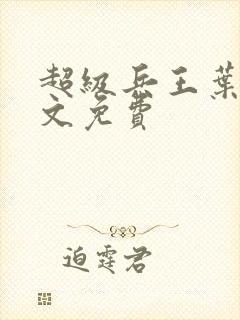 超级兵王葉
文免費
迫霆君